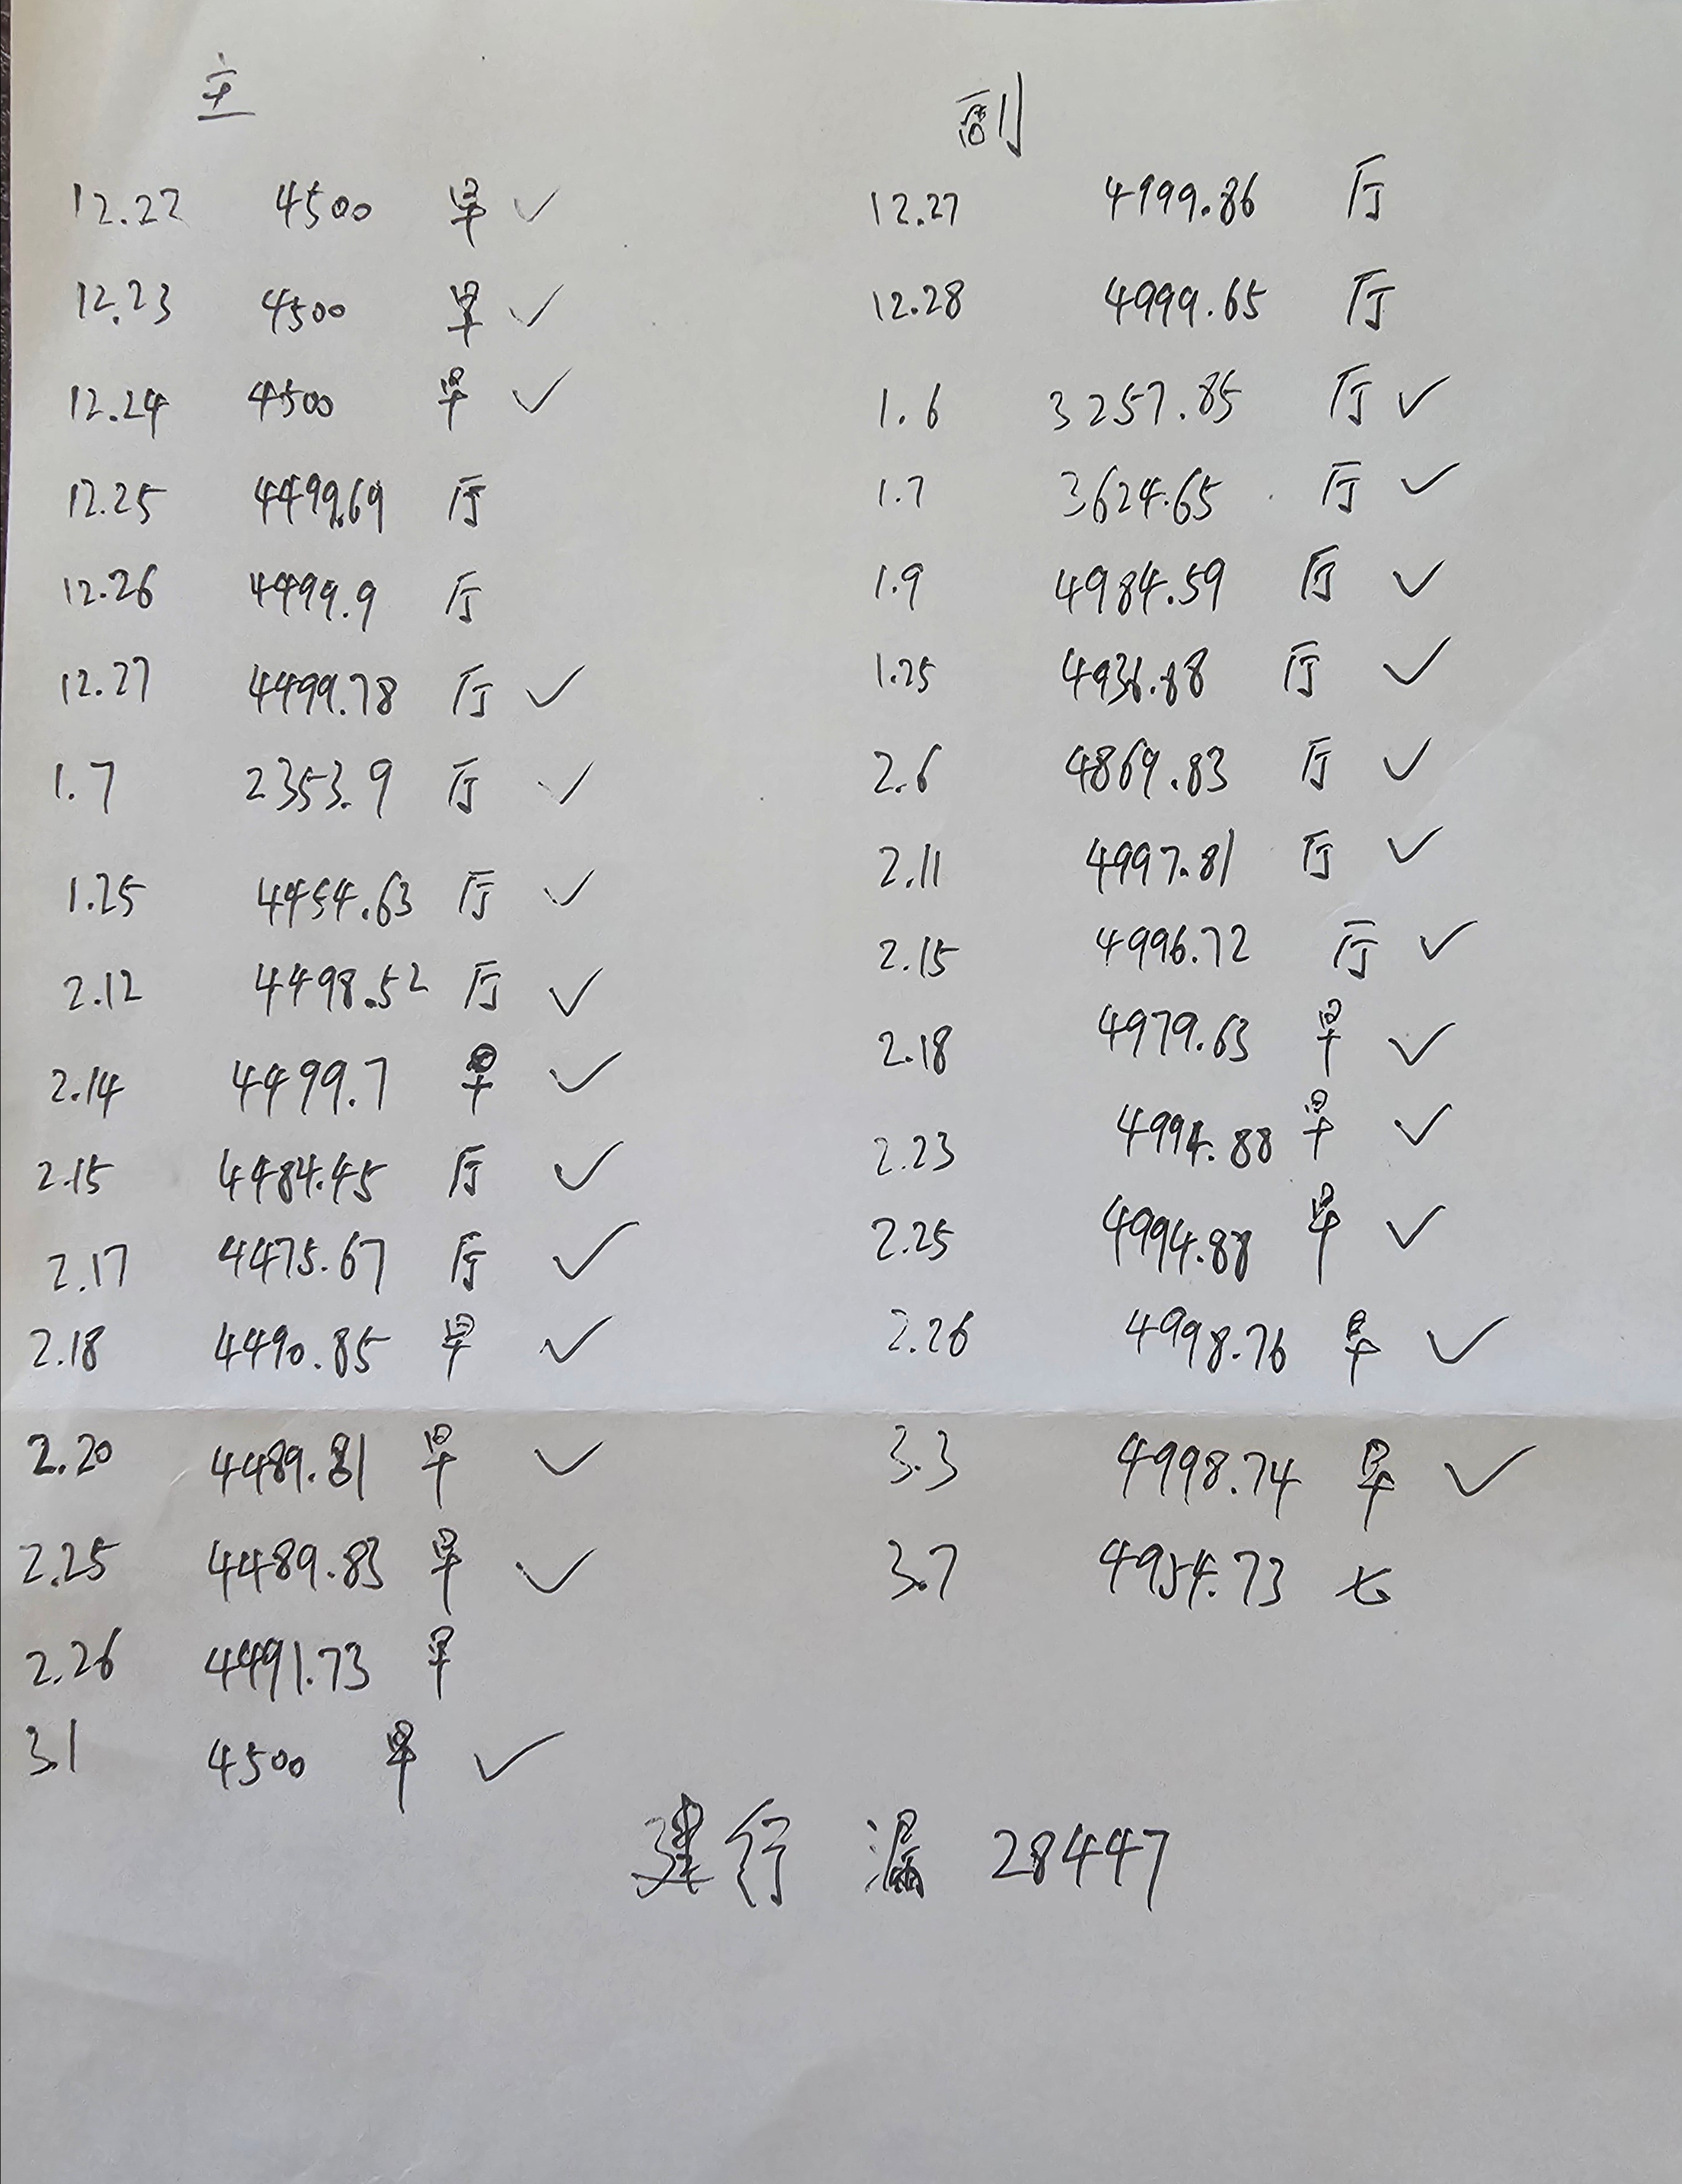 主
12.22 4500 早 ✓
12.23 4500 早 ✓
12.24 4500 早 ✓
12.25 4499.69 厅
12.26 4499.9 厅
12.27 4499.78 厅 ✓
1.7 2353.9 厅 ✓
1.25 4454.63 厅 ✓
2.12 4498.52 厅 ✓
2.14 4499.7 早 ✓
2.15 4484.45 厅 ✓
2.17 4475.67 厅 ✓
2.18 4490.85 早 ✓
2.20 4489.81 早 ✓
2.25 4489.83 早 ✓
2.26 4491.73 早
3.1 4500 早 ✓
副
12.27 4999.86 厅
12.28 4999.65 厅
1.6 3257.85 厅 ✓
1.7 3624.65 厅 ✓
1.9 4984.59 厅 ✓
1.25 厅 ✓
2.6 4869.83 厅 ✓
2.11 4997.81 厅 ✓
2.15 4996.72 厅 ✓
2.18 4979.63 早 ✓
2.23 4994.88 早 ✓
2.25 4994.88 早 ✓
2.26 4998.76 早 ✓
3.3 4998.74 早 ✓
3.7 4954.73 七
建行 漏 28447